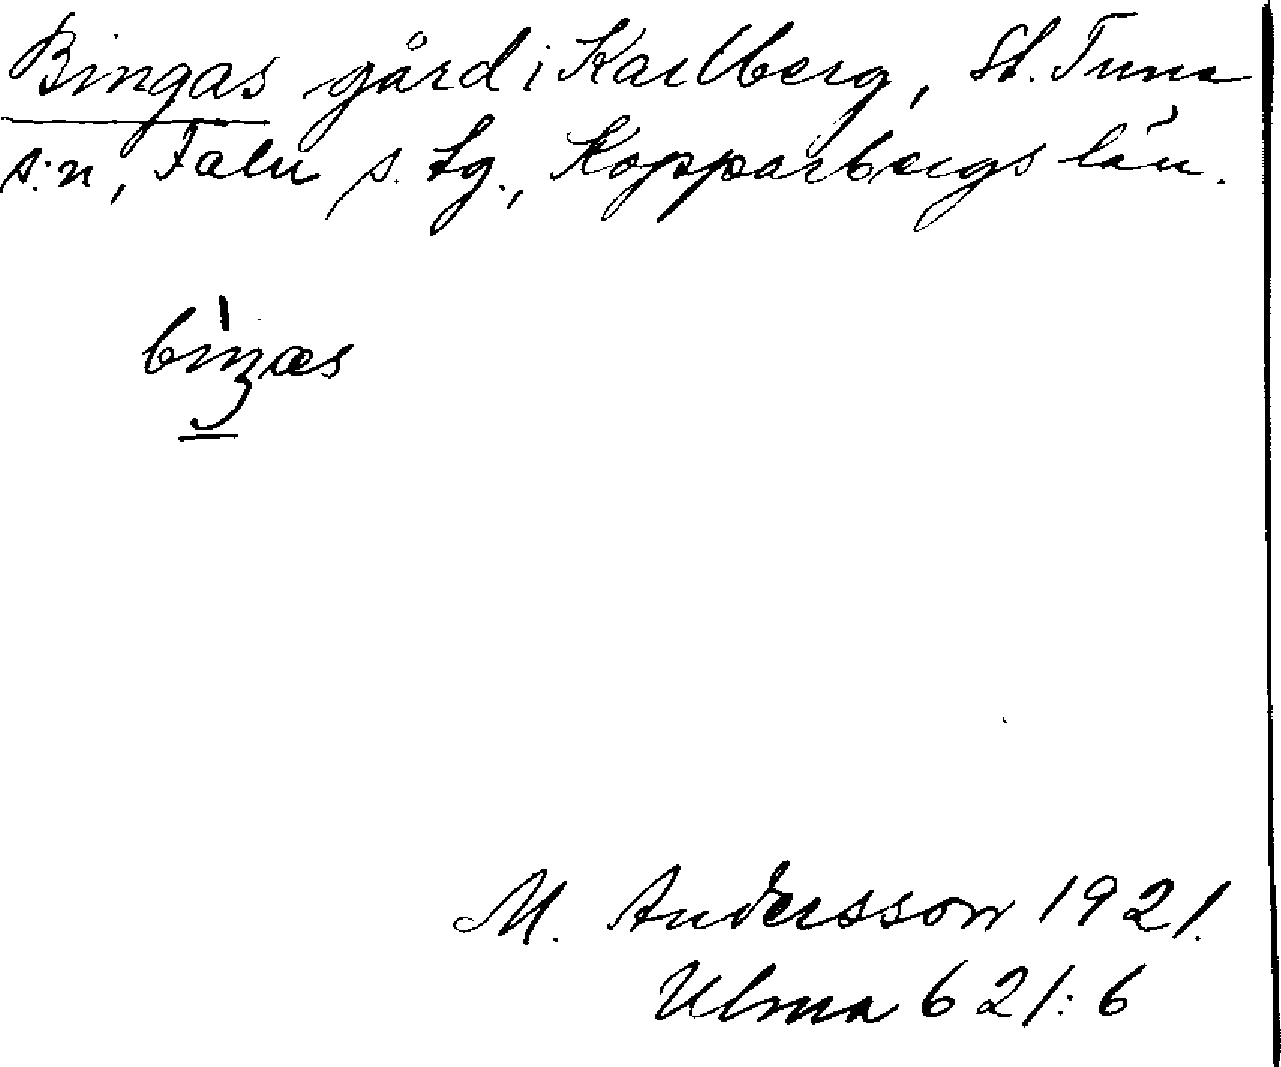 Bingas gård i Karlberg, St. Tuna
s:n, Falu s. tg., Kopparbergs län.
M. Andersson 1921.
Ulma 621:6